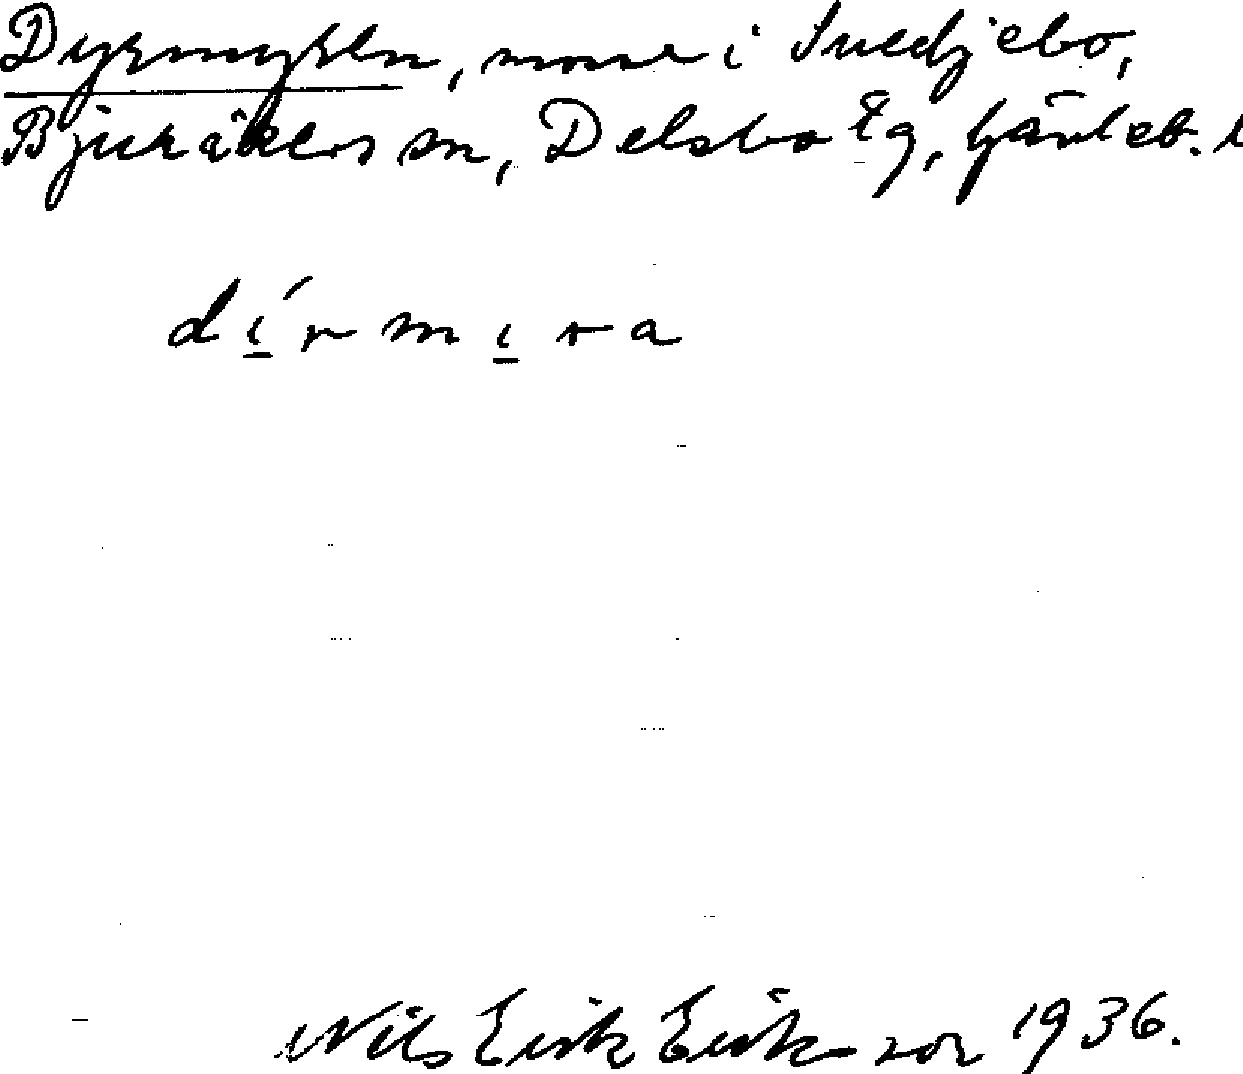 Dyrmyren, mosse i Svedjebo,
Bjuråkers sn, Delsbo tg, Gävleb. l
dırmıra
Nils Erik Eriksson 1936.